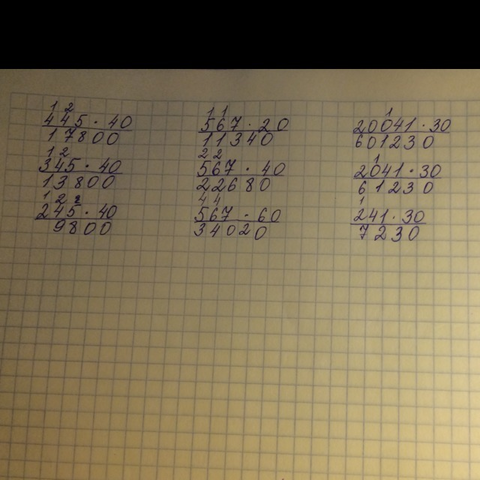 1 2
445 · 40
17800
1 2
345 · 40
13800
1 2
245 · 40
9800
1 1
567 · 20
11340
2 2
567 · 40
22680
4 4
567 · 60
34020
1
20041 · 30
601230
1
2041 · 30
61230
1
241 · 30
7230